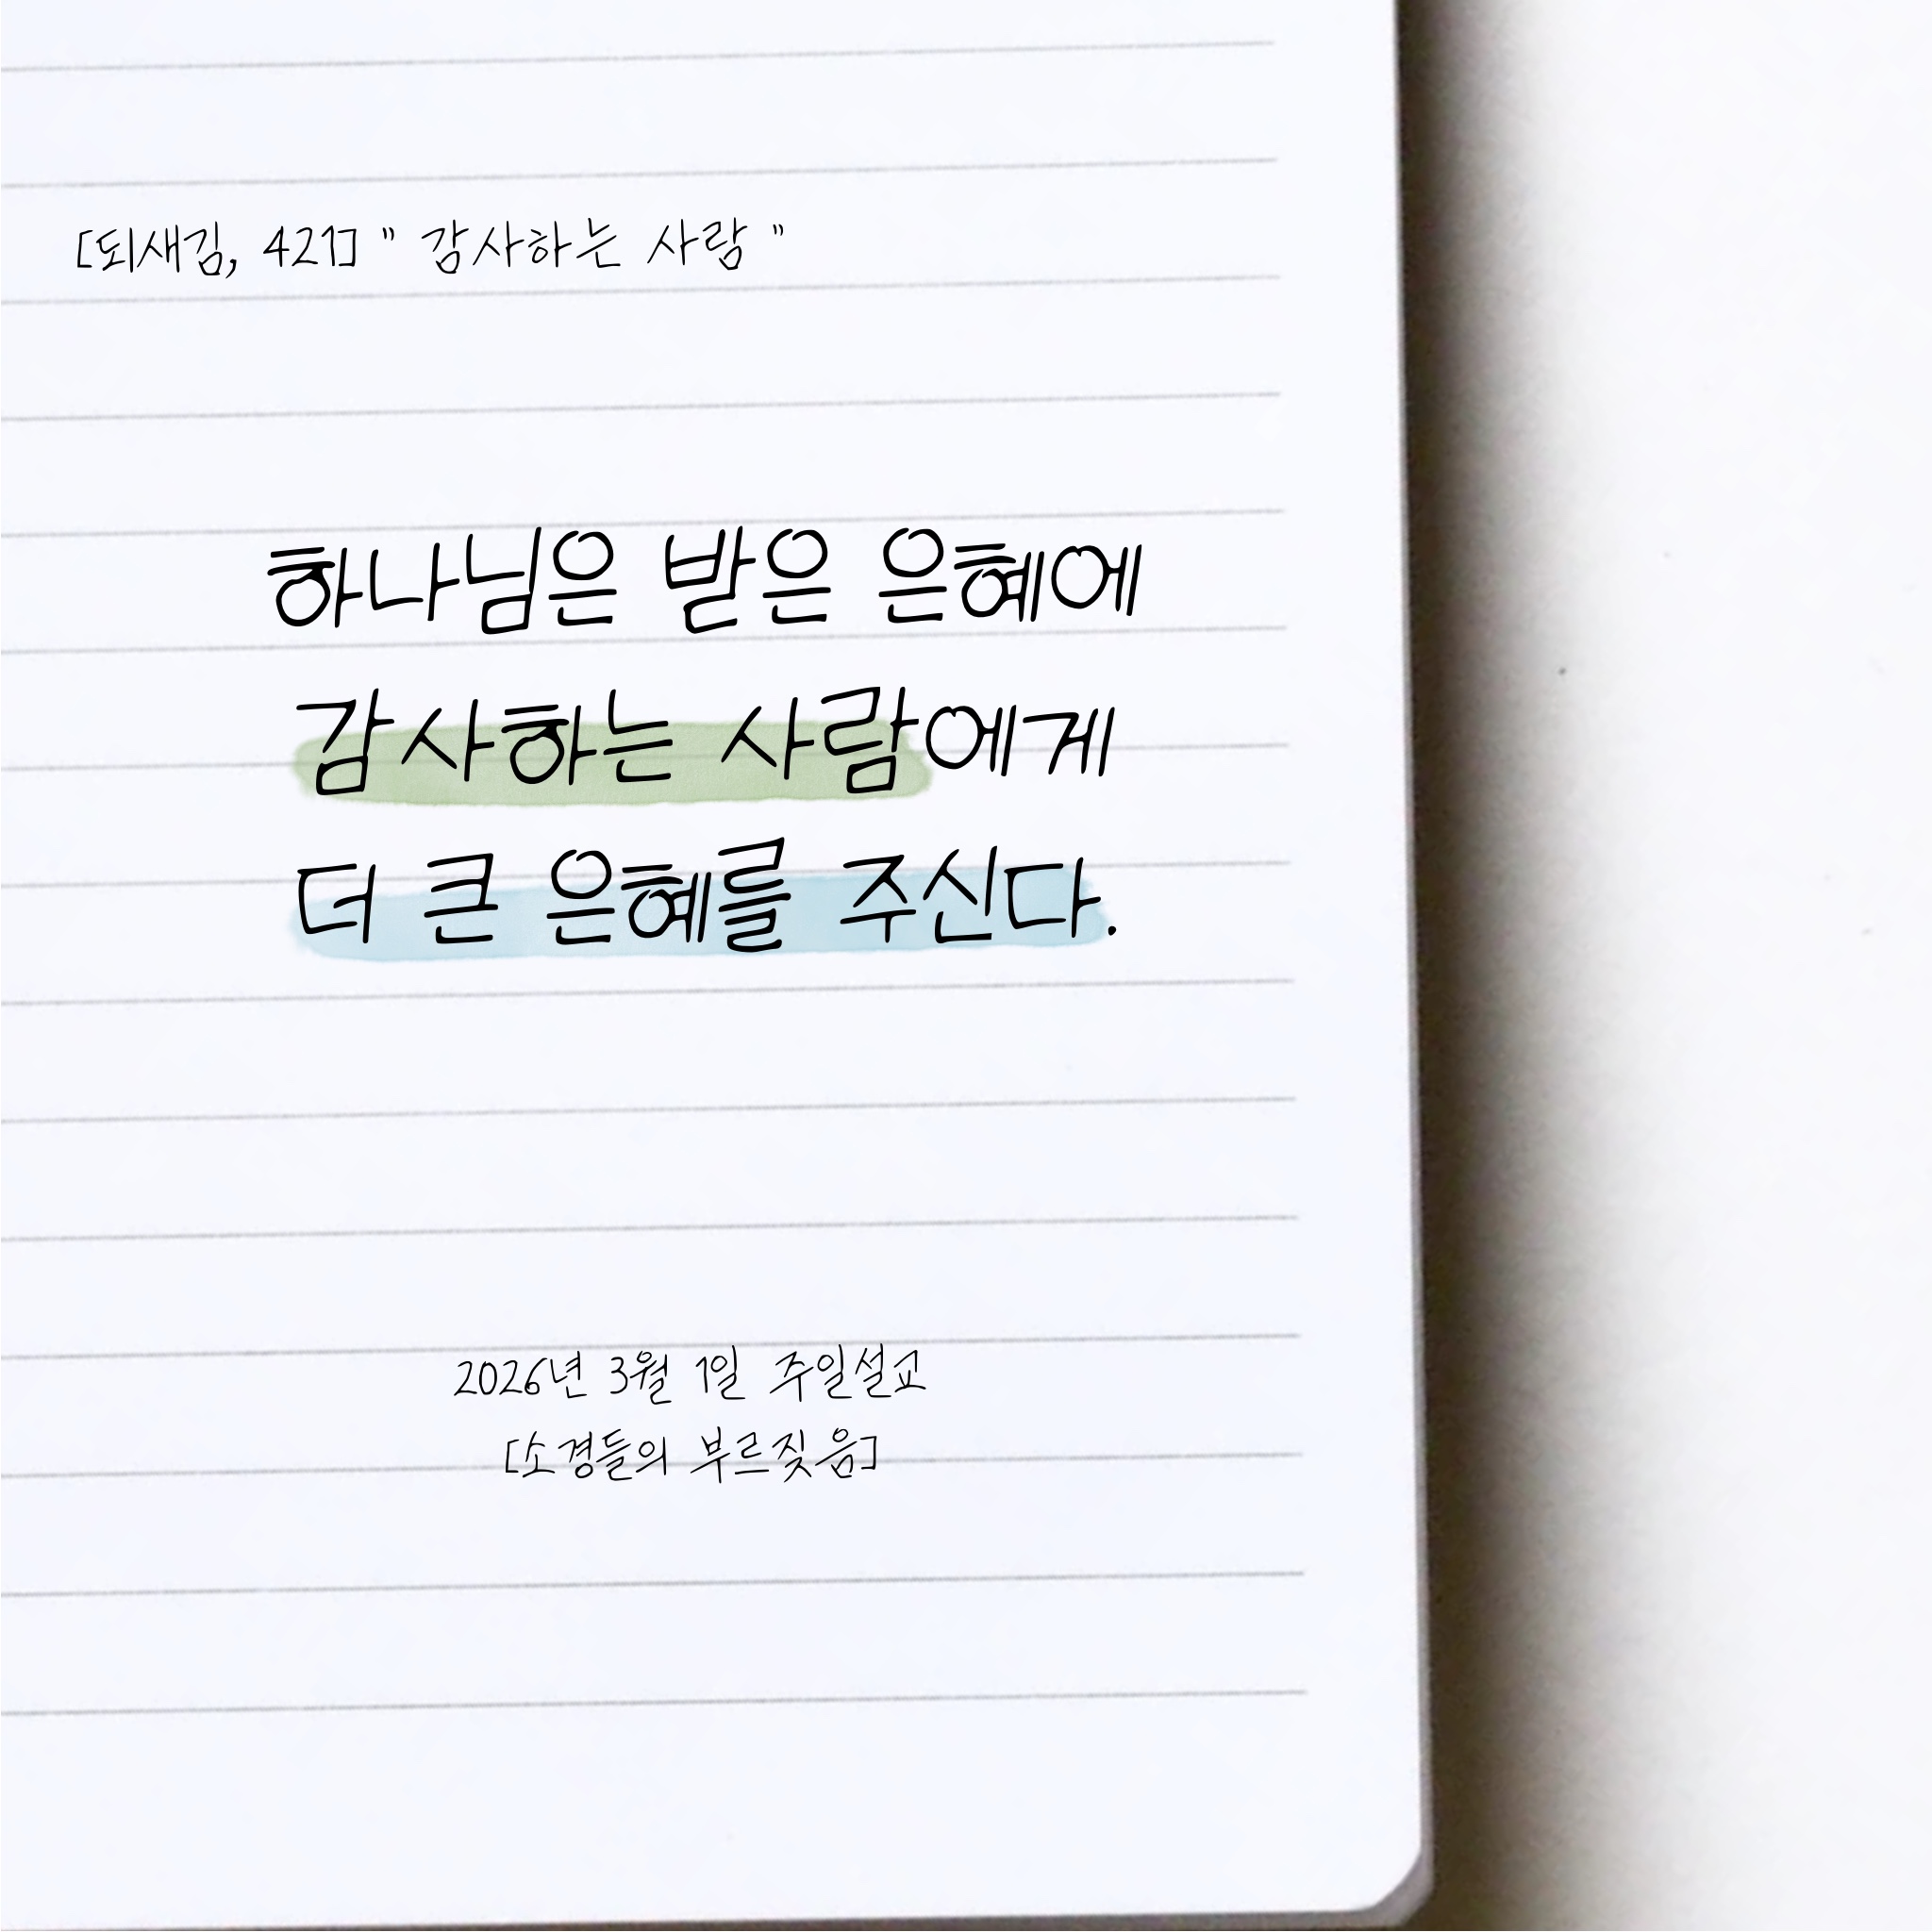 [되새김, 421] " 감사하는 사람 "
하나님은 받은 은혜에
감사하는 사람에게
더 큰 은혜를 주신다.
2026년 3월 1일 주일설교
[소경들의 부르짖음]